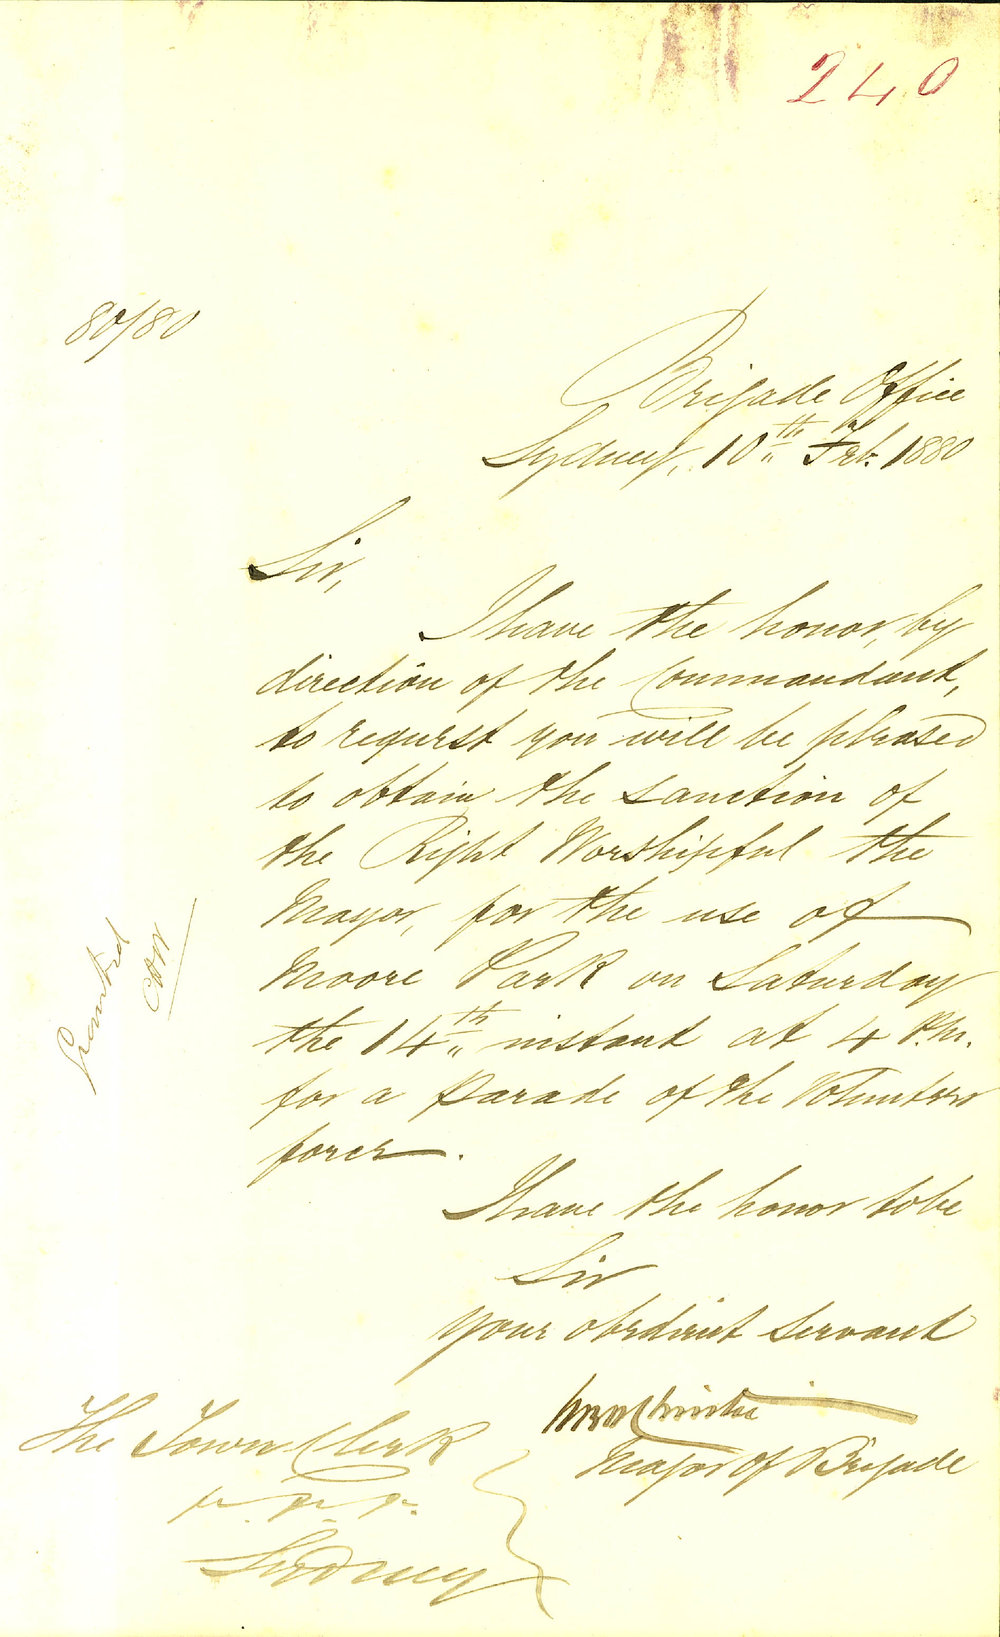 240
80/80
Brigade Office
Sydney, 10th Feb. 1880
Sir,
I have the honor, by
direction of the Commandant,
to request you will be pleased
to obtain the sanction of
the Right Worshipful the
Mayor, for the use of
Moore Park on Saturday
the 14th instant at 4 P.M.
for a Parade of the Volunteer
force.
Granted
I have the honor to be
Sir
your obedient servant
Major of Brigade
The Town Clerk
Sydney